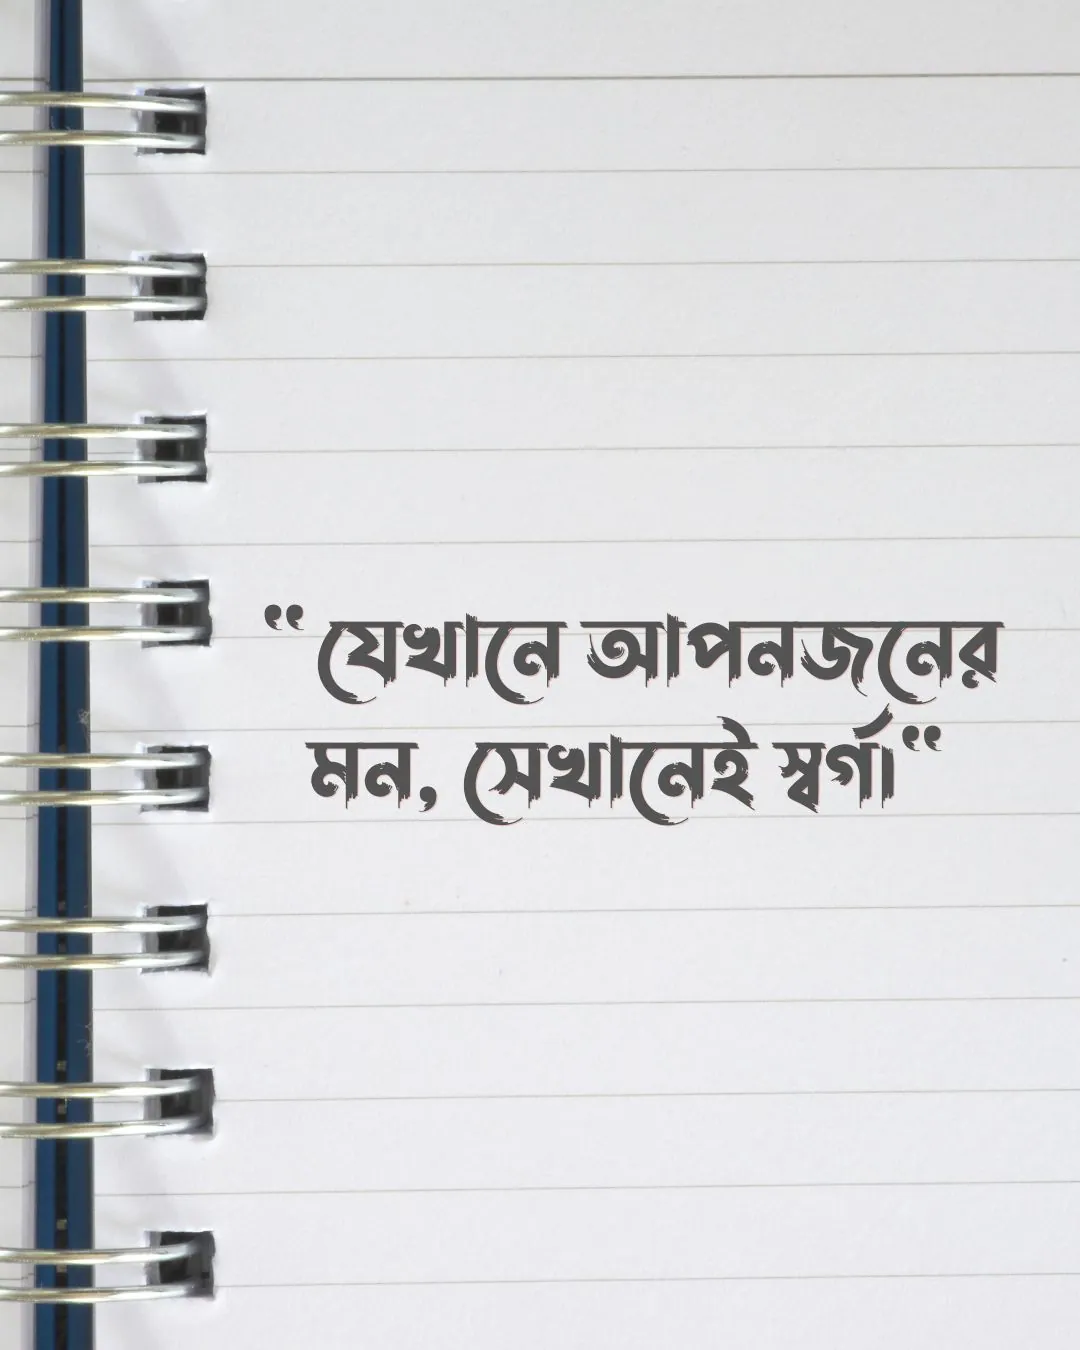 “যেখানে আপনজনের
মন, সেখানেই স্বর্গ“